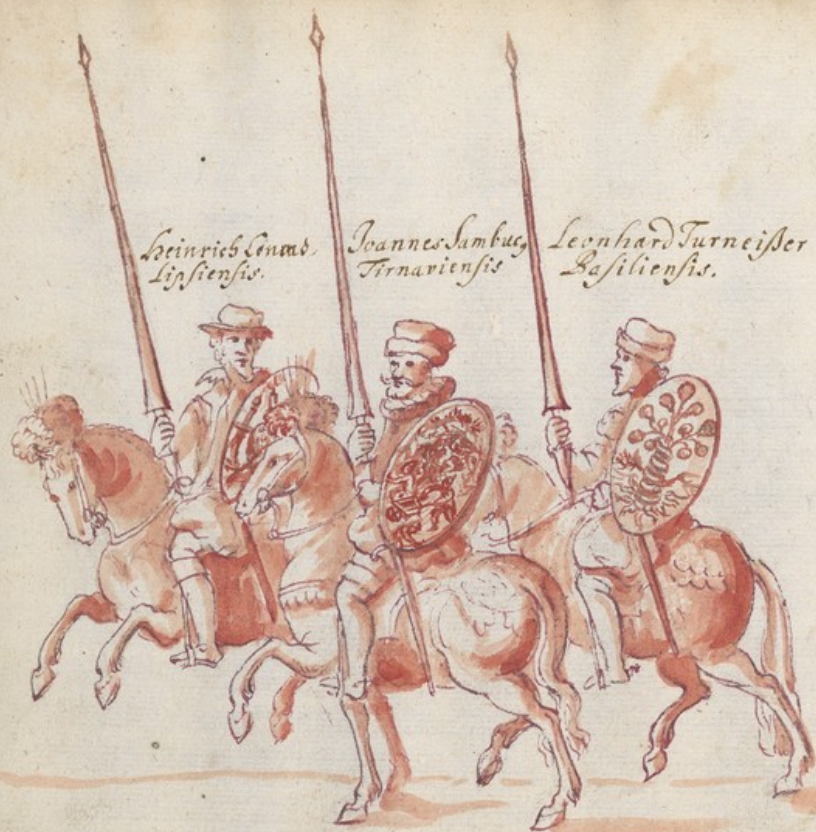 Heinrich Conrad.
Lipsiensis.
Joannes Sambucꝯ
Tirnaviensis
Leonhard Turneißer
Basiliensis.